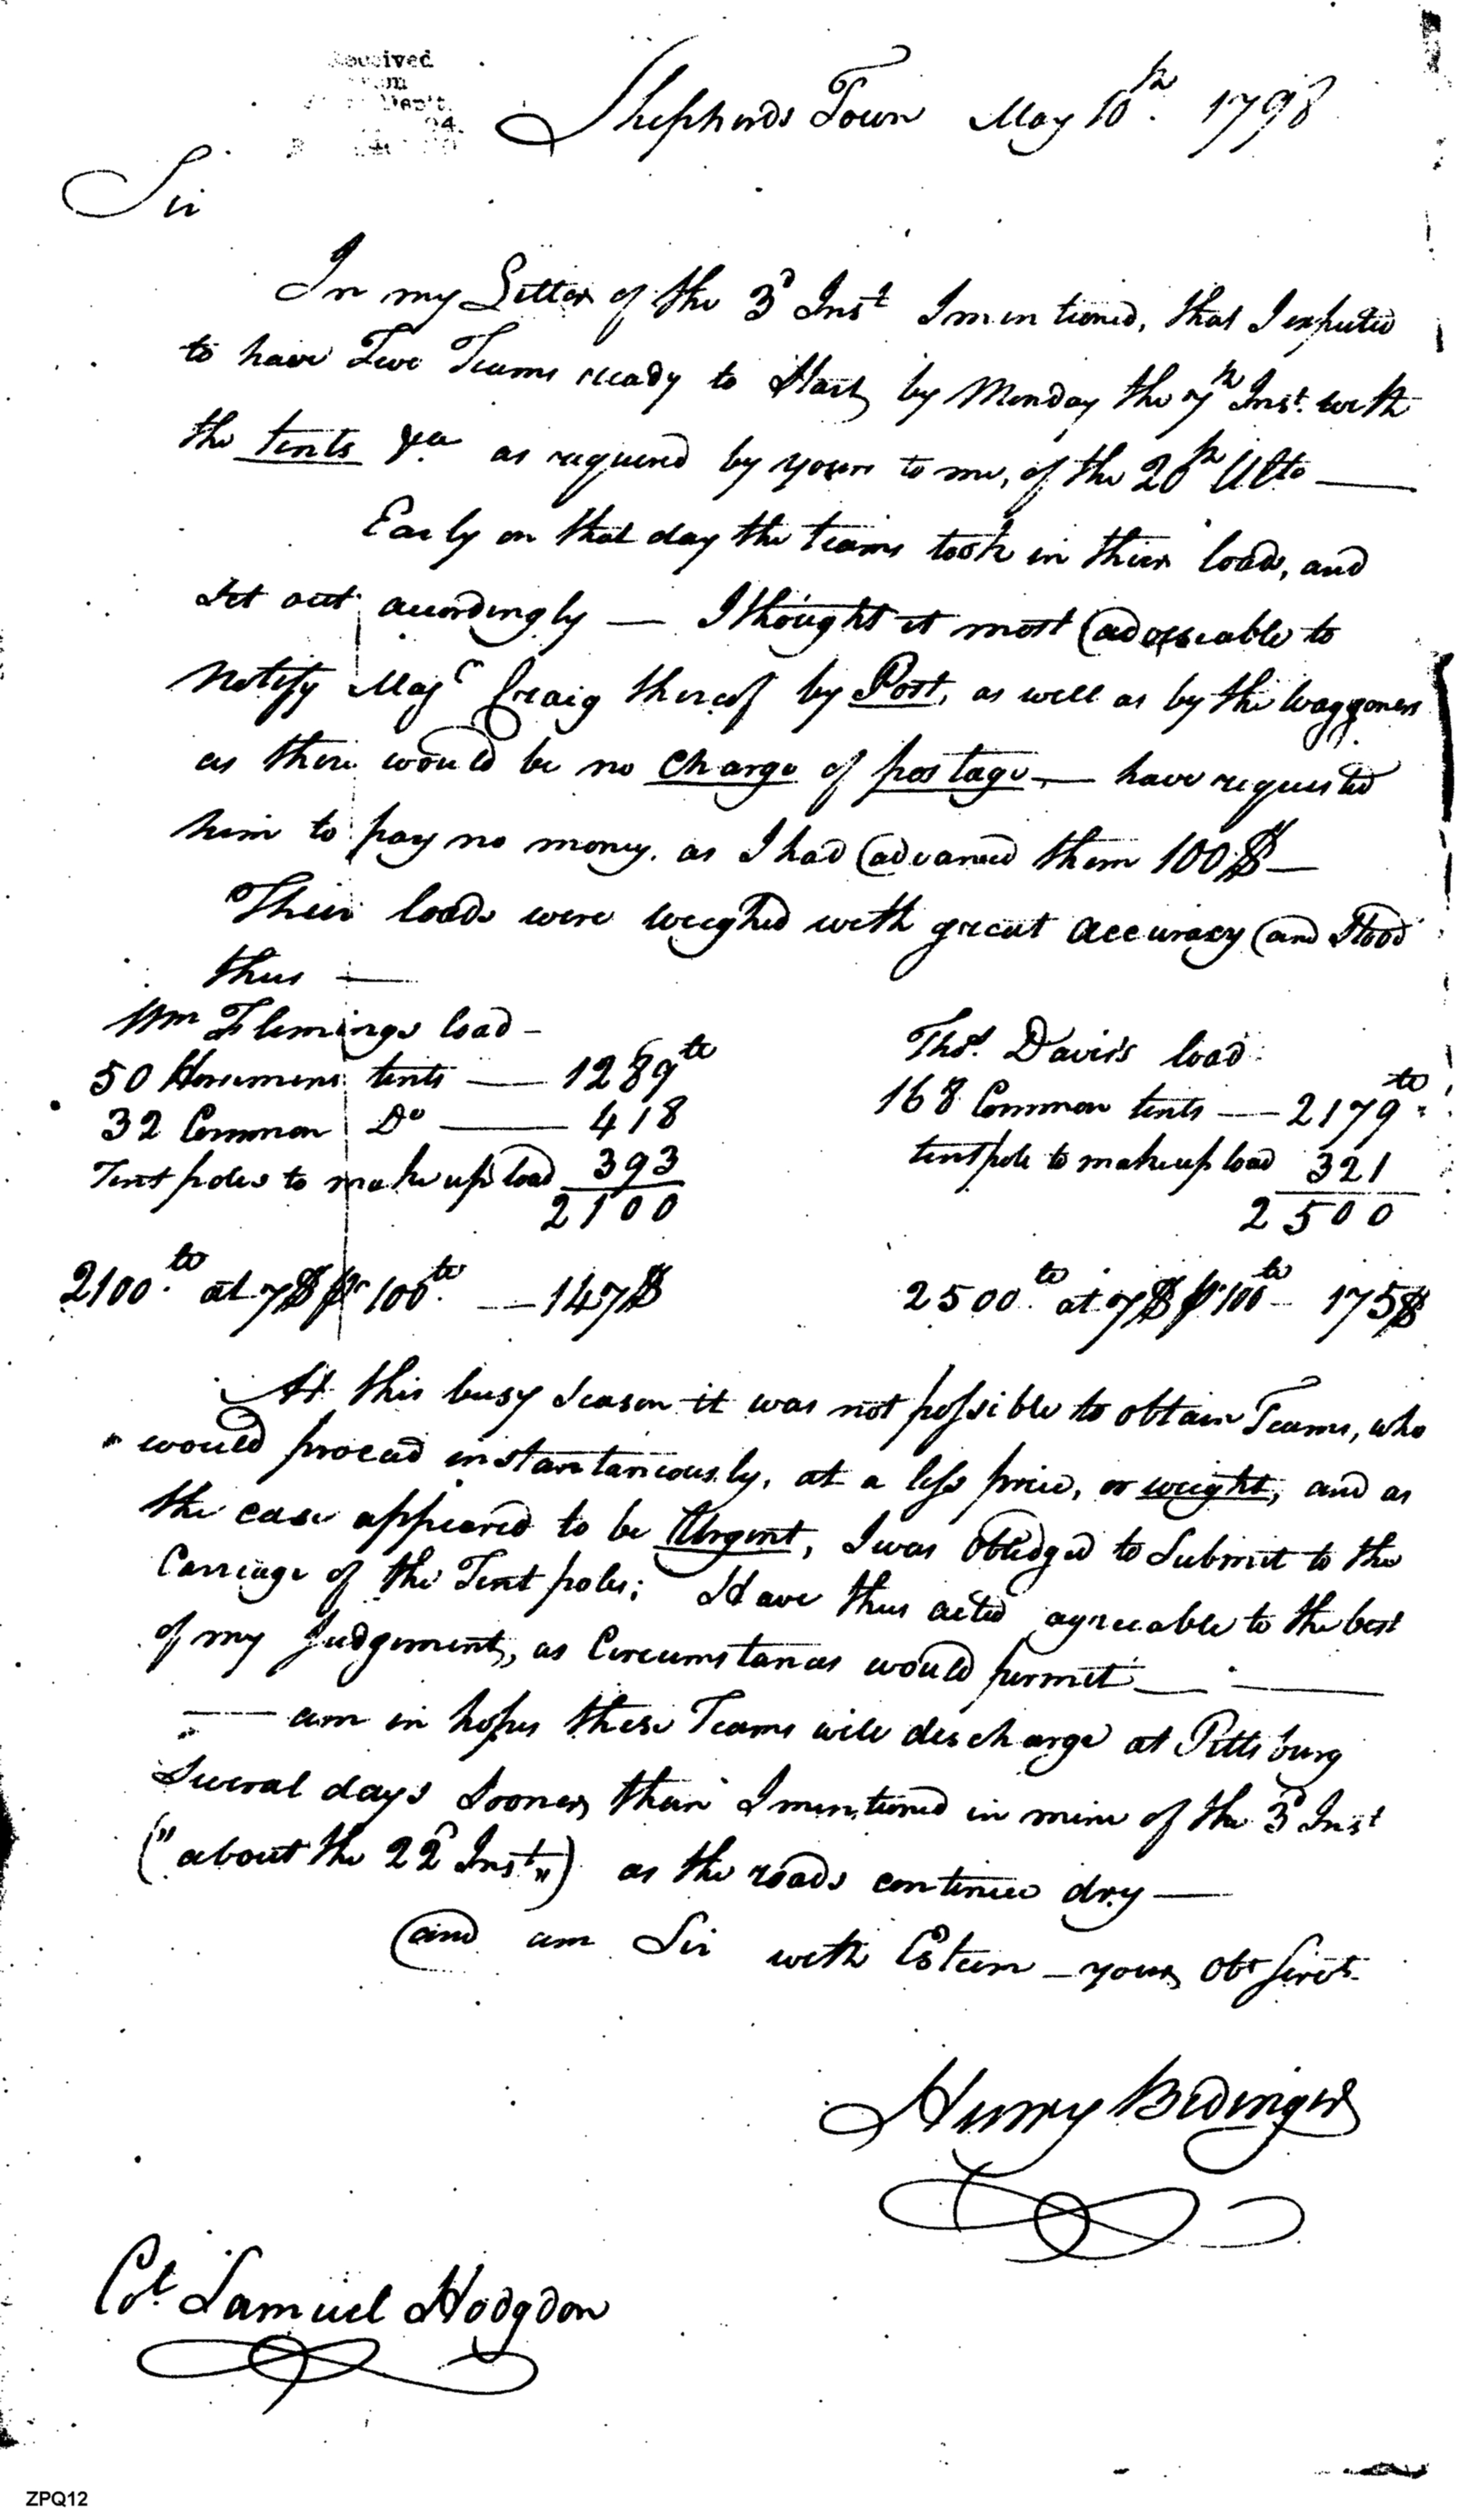 Received
from
Dep't.
94
Shepherds Town May 10th. 1798
Sir
In my Letter of the 3d Inst I mentioned, that I expected
to have Two Teams ready to Start by Monday the 7th Inst. with
the tents &ca as required by yours to me, of the 20th Ulto —
Early on that day the teams took in their loads, and
Set out accordingly — I thought it most adviseable to
Notify Majr Craig thereof by Post, as well as by the Waggoners
as there would be no Charge of postage — have requested
him to pay no money. as I had advanced them 100$ —
Their loads were weighed with great accuracy and Stood
thus —
Wm Flemings load -
50 Horsemens tents — 1289 lb
32 Common Do — 418
Tent poles to make up load 393
2100
2100 lb. at 7$ pr 100 lb. — 147$
Thos. Davis's load
168 Common tents — 2179 lb.
tent pole to make up load 321
2500
2500 lb. at 7$ pr 100 lb - 175$
At this busy Season it was not possible to obtain Teams, who
would procead instantaniously, at a less price, or weight, and as
the case appeared to be Urgent, I was Obledged to Submit to the
Carriage of the Tent poles; Have thus acted agreeable to the best
of my Judgement, as Circumstances would permit —
— am in hopes these Teams will discharge at Pittsburg
Several days Sooner than I mentioned in mine of the 3d Inst
("about the 22d Inst") as the roads continue dry —
and am Sir with Esteem - your Obt Servt.
Henry Bedinger
Col. Samuel Hodgdon
ZPQ12